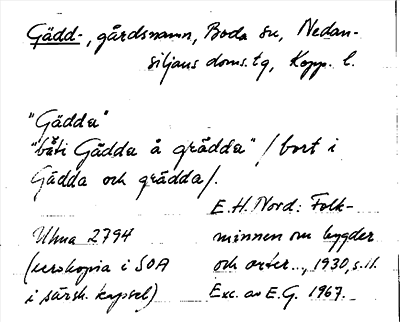 Gädd-, gårdsnamn, Boda sn, Nedan-
siljans doms.tg, Kopp. l.
"Gädda"
"båti Gädda å grädda" / bort i
Gädda och grädda/.
E.H. Nord: Folk-
minnen om bygder
och orter..., 1930, s. 11.
Exc. av E.G. 1967.
Uhna 2794
(xerokopia i SOA
i särsk. kapsel)